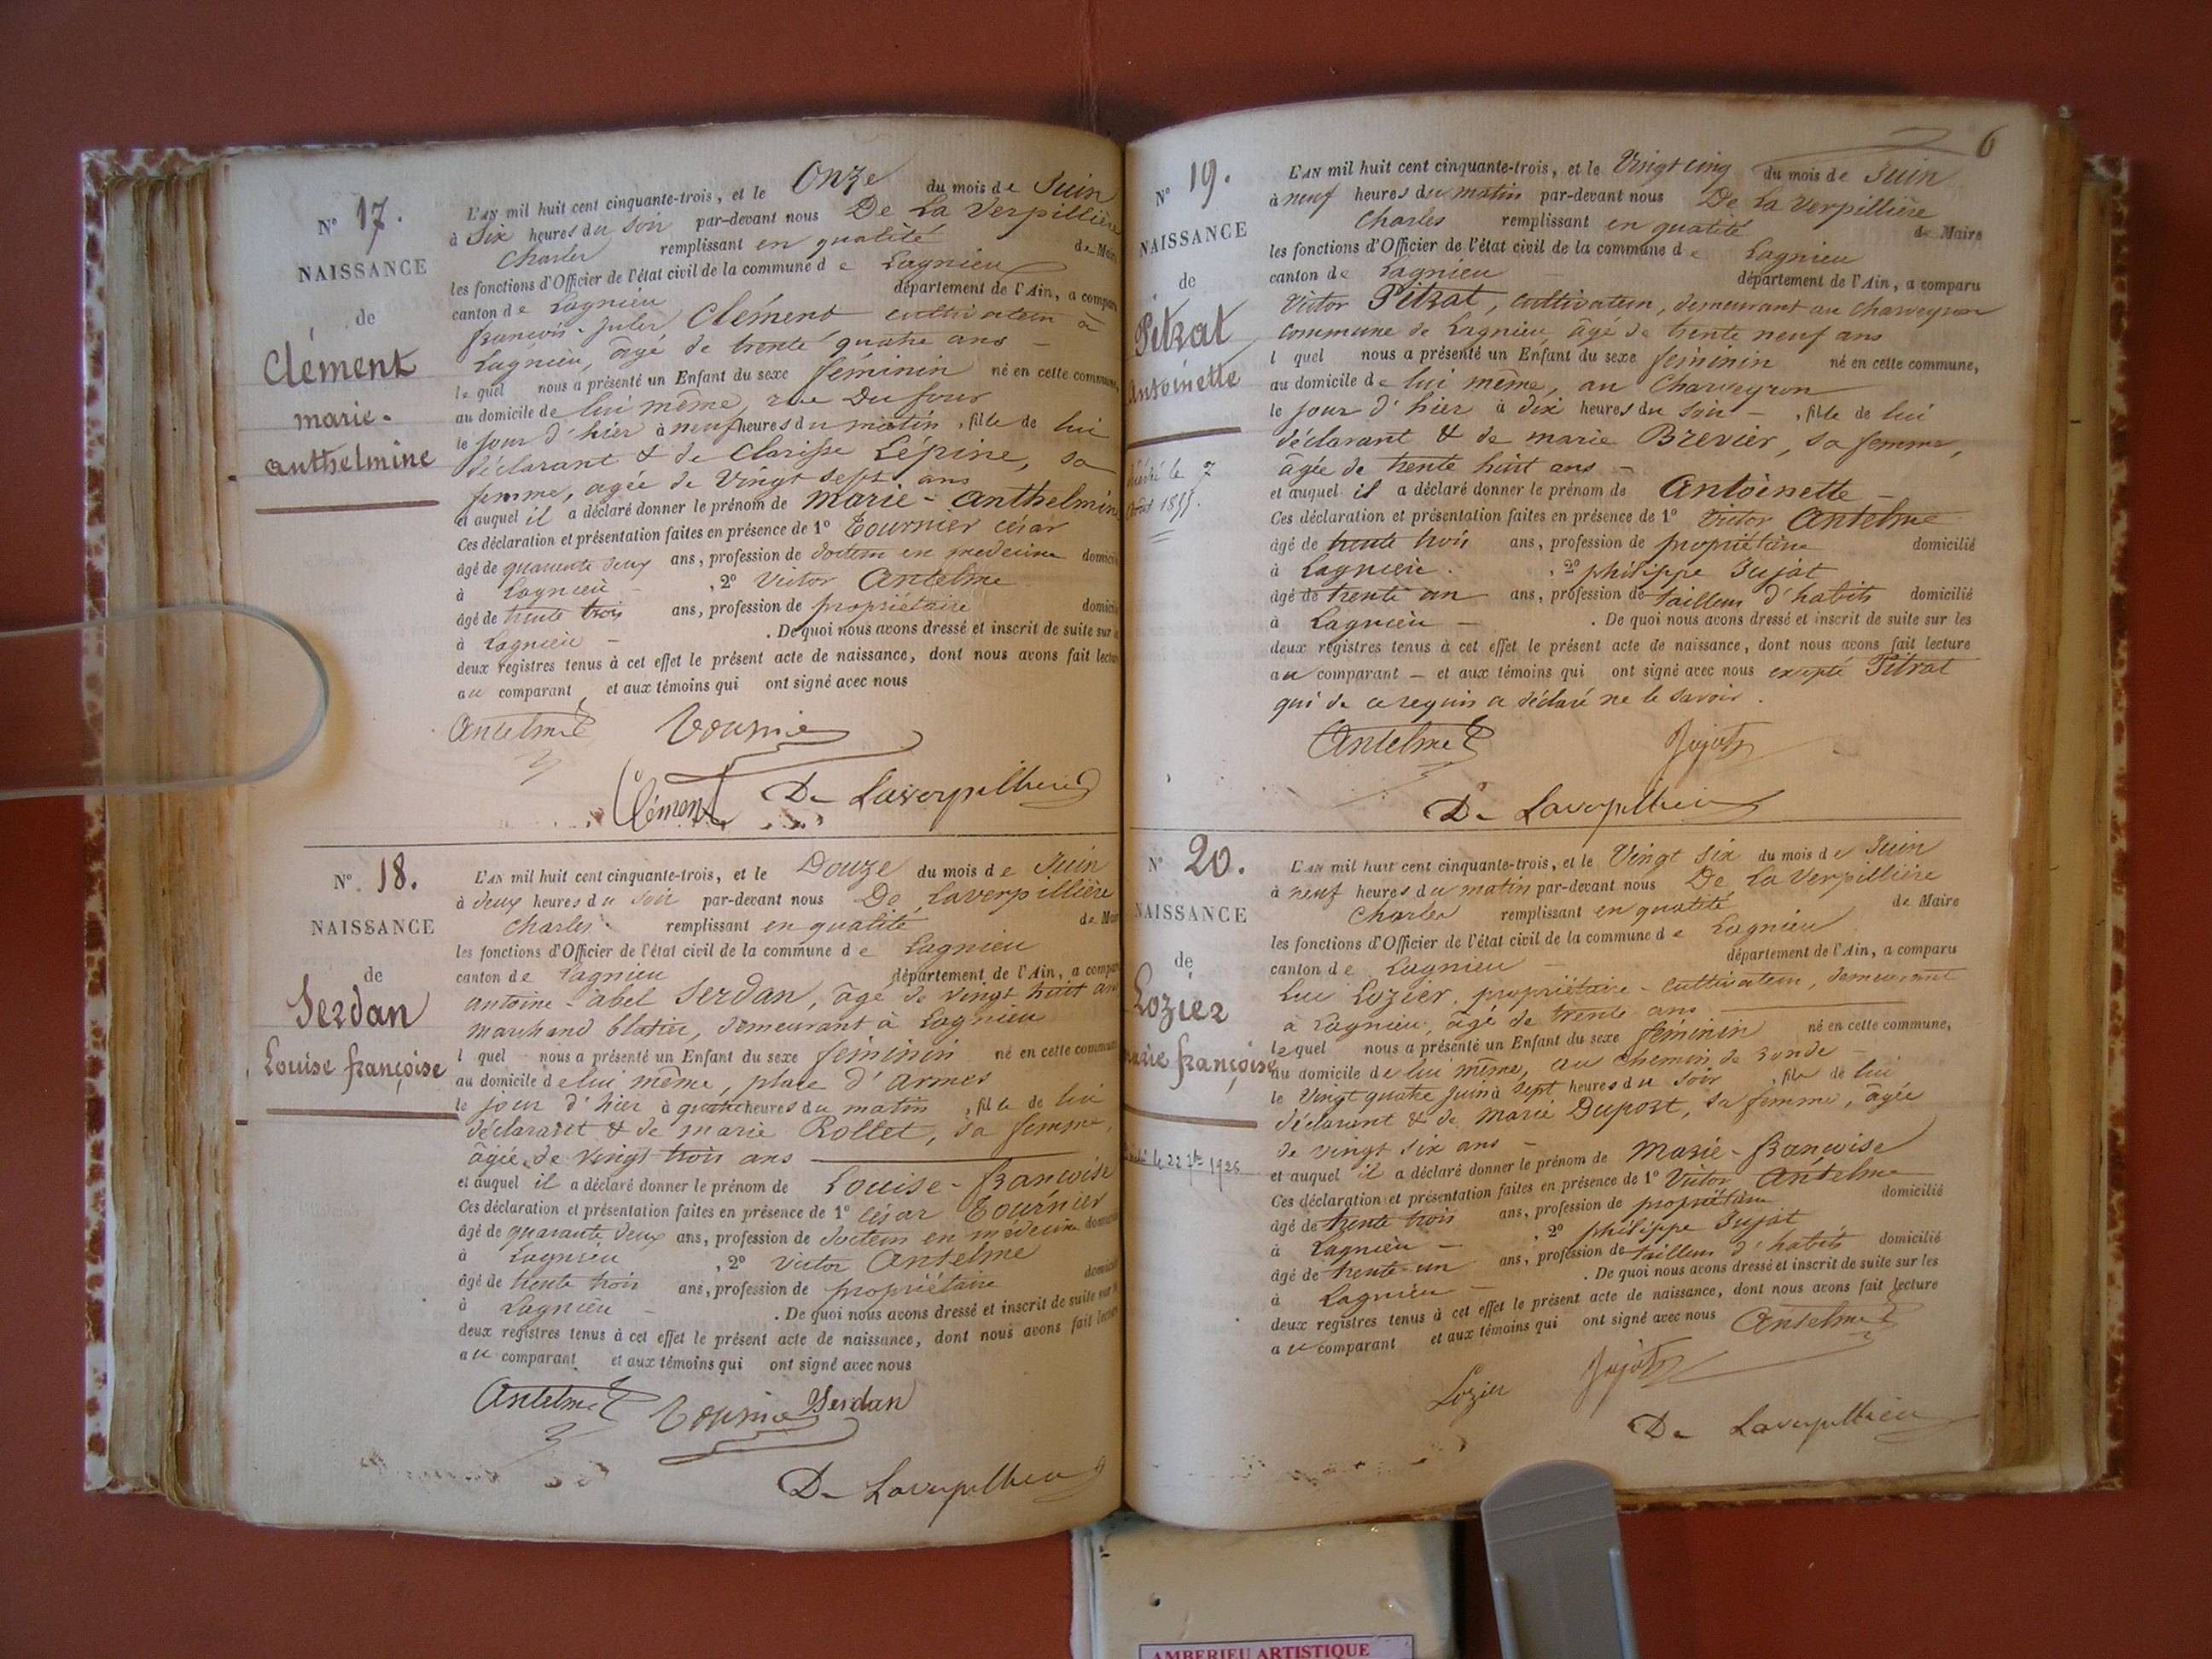 N° 17.
NAISSANCE
de
Clément
marie-
anthelmine
L'AN mil huit cent cinquante-trois, et le Onze du mois de Juin
à Six heures du soir par-devant nous De La Verpillière
Charles remplissant en qualité de Maire
les fonctions d'Officier de l'état civil de la commune de Lagnieu
canton de Lagnieu département de l'Ain, a comparu
françois-Jules Clément cultivateur à
Lagnieu, âgé de trente quatre ans
le quel nous a présenté un Enfant du sexe féminin né en cette commune,
au domicile de lui même, rue Du four
le jour d'hier à neuf heures du matin, fille de lui
déclarant & de Clarisse Lépine, sa
femme, agée de Vingt sept ans
et auquel il a déclaré donner le prénom de marie-anthelmine
Ces déclaration et présentation faites en présence de 1° Tournier césar
âgé de quarante deux ans, profession de docteur en medecine domicilié
à Lagnieu , 2° Victor Antelme
âgé de trente trois ans, profession de propriétaire domicilié
à Lagnieu . De quoi nous avons dressé et inscrit de suite sur les
deux registres tenus à cet effet le présent acte de naissance, dont nous avons fait lecture
au comparant et aux témoins qui ont signé avec nous
Antelme Tournier
Clément De Laverpillière
N° 18.
NAISSANCE
de
Serdan
Louise françoise
L'AN mil huit cent cinquante-trois, et le Douze du mois de Juin
à deux heures du soir par-devant nous De Laverpillière
Charles remplissant en qualité de Maire
les fonctions d'Officier de l'état civil de la commune de Lagnieu
canton de Lagnieu département de l'Ain, a comparu
antoine-abel Serdan, âgé de vingt huit ans
marchand blatier, demeurant à Lagnieu
l quel nous a présenté un Enfant du sexe féminin né en cette commune
au domicile de lui même, place d'armes
le jour d'hier à quatre heures du matin, fille de lui
déclarant & de marie Rollet, sa femme,
âgée de vingt trois ans
et auquel il a déclaré donner le prénom de Louise-françoise
Ces déclaration et présentation faites en présence de 1° César Tournier
âgé de quarante deux ans, profession de docteur en médecine domicilié
à Lagnieu , 2° Victor Antelme
âgé de trente trois ans, profession de propriétaire domicilié
à Lagnieu . De quoi nous avons dressé et inscrit de suite sur les
deux registres tenus à cet effet le présent acte de naissance, dont nous avons fait lecture
au comparant et aux témoins qui ont signé avec nous
Antelme Tournier Serdan
De Laverpillière
6
N° 19.
NAISSANCE
de
Pitrat
Antoinette
L'AN mil huit cent cinquante-trois, et le Vingt cinq du mois de Juin
à neuf heures du matin par-devant nous De La Verpillière
Charles remplissant en qualité de Maire
les fonctions d'Officier de l'état civil de la commune de Lagnieu
canton de Lagnieu département de l'Ain, a comparu
Victor Pitrat, cultivateur, demeurant au Charveyron
commune de Lagnieu, âgé de trente neuf ans
l quel nous a présenté un Enfant du sexe féminin né en cette commune,
au domicile de lui même, au Charveyron
le jour d'hier à dix heures du soir, fille de lui
déclarant & de marie Brevier, sa femme,
âgée de trente huit ans
et auquel il a déclaré donner le prénom de Antoinette
Ces déclaration et présentation faites en présence de 1° Victor Antelme
âgé de trente trois ans, profession de propriétaire domicilié
à Lagnieu. , 2° philippe Jujat
âgé de trente un ans, profession de tailleur d'habits domicilié
à Lagnieu . De quoi nous avons dressé et inscrit de suite sur les
deux registres tenus à cet effet le présent acte de naissance, dont nous avons fait lecture
au comparant et aux témoins qui ont signé avec nous excepté Pitrat
qui de ce requis a déclaré ne le savoir.
Antelme Jujat
De Laverpillière
N° 20.
NAISSANCE
de
Lozier
marie françoise
L'AN mil huit cent cinquante-trois, et le Vingt six du mois de Juin
à neuf heures du matin par-devant nous De La Verpillière
Charles remplissant en qualité de Maire
les fonctions d'Officier de l'état civil de la commune de Lagnieu
canton de Lagnieu département de l'Ain, a comparu
Luc Lozier, propriétaire-cultivateur, demeurant
à Lagnieu, âgé de trente ans
le quel nous a présenté un Enfant du sexe féminin né en cette commune,
au domicile de lui même, au chemin de ronde
le Vingt quatre juin à sept heures du soir, fille de lui
déclarant & de Marie Duport, sa femme, âgée
de vingt six ans
et auquel il a déclaré donner le prénom de Marie-françoise
Ces déclaration et présentation faites en présence de 1° Victor Antelme
âgé de trente trois ans, profession de propriétaire domicilié
à Lagnieu , 2° philippe Jujat
âgé de trente-un ans, profession de tailleur d'habits domicilié
à Lagnieu . De quoi nous avons dressé et inscrit de suite sur les
deux registres tenus à cet effet le présent acte de naissance, dont nous avons fait lecture
au comparant et aux témoins qui ont signé avec nous Antelme
Lozier Jujat
De Laverpillière
AMBERIEU ARTISTIQUE